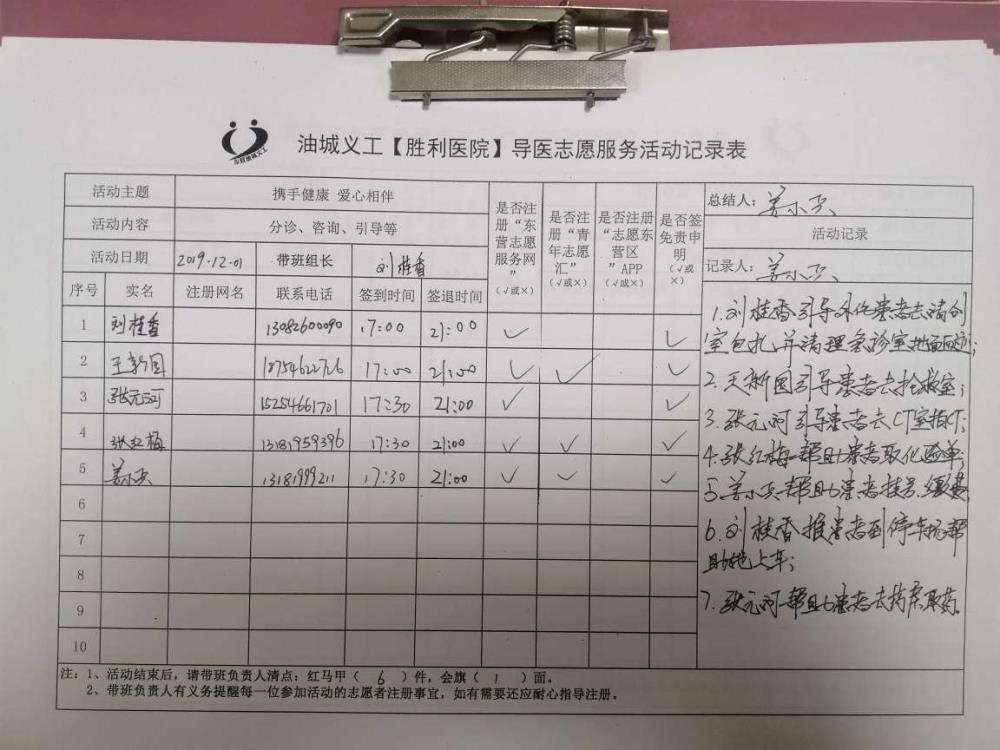 东营油城义工
油城义工【胜利医院】导医志愿服务活动记录表
活动主题 携手健康 爱心相伴 是否注册“东营志愿服务网”（√或×） 是否注册“青年志愿汇”（√或×） 是否注册“志愿东营区”APP（√或×） 是否签免责申明（√或×） 总结人：姜小兵
活动内容 分诊、咨询、引导等 活动记录
活动日期 2019.12.01 带班组长 刘桂香 记录人：姜小兵
序号 实名 注册网名 联系电话 签到时间 签退时间
1 刘桂香 13082600090 17:00 21:00 √ √
2 王新国 18754622726 17:00 21:00 √ √ √
3 张元河 15254661701 17:30 21:00 √ √
4 张红梅 13181959396 17:30 21:00 √ √ √
5 姜小兵 13181999211 17:30 21:00 √ √ √
6
7
8
9
10
1.刘桂香引导外伤患者去清创
室包扎并清理急诊室地面
2.王新国引导患者去抢救室；
3.张元河引导患者去CT室拍CT；
4.张红梅帮助患者取化验单；
5.姜小兵帮助患者挂号、缴费
6.刘桂香推患者到停车场帮
助她上车；
7.张元河帮助患者去药房取药。
注：1、活动结束后，请带班负责人清点：红马甲（ 6 ）件，会旗（ 1 ）面。
2、带班负责人有义务提醒每一位参加活动的志愿者注册事宜，如有需要还应耐心指导注册。